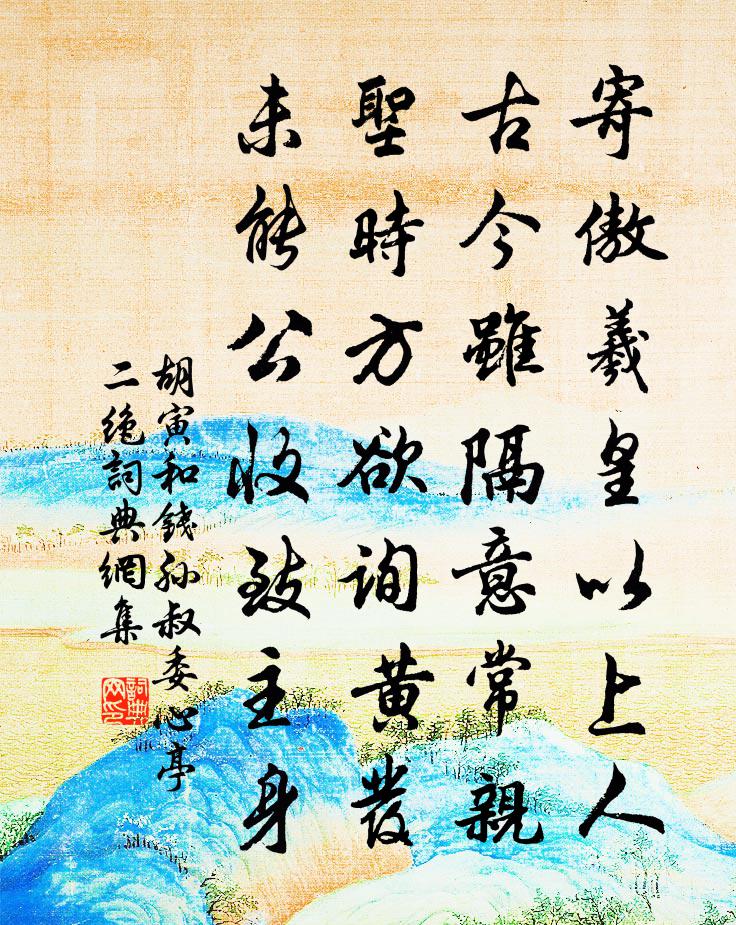 寄傲羲皇以上人
古今雖隔意常親
聖時方欲詢黃發
未能公收致主身
胡寅和錢孙叔委心亭
二絕詞典網集
詞典网印